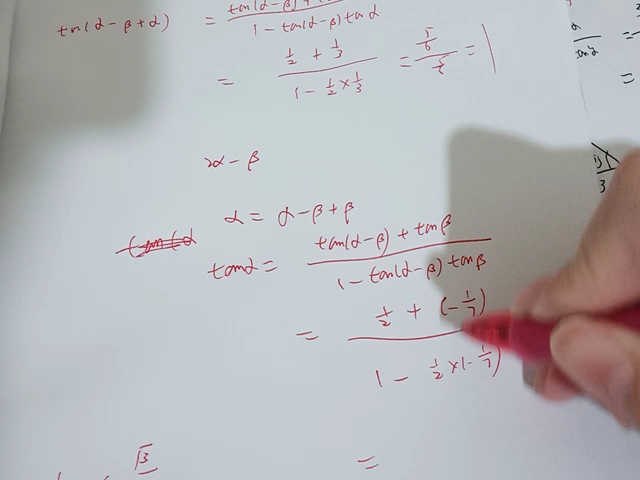 tan(α-β+α) = tan(α-β)+ / 1-tan(α-β)tanα
= (1/2 + 1/3) / (1 - 1/2 × 1/3) = (5/6) / (5/6) = 1
2α-β
α = α-β+β
tanα = (tan(α-β) + tanβ) / (1-tan(α-β)tanβ)
= (1/2 + (-1/7)) / (1 - 1/2 × (-1/7))
√3
=